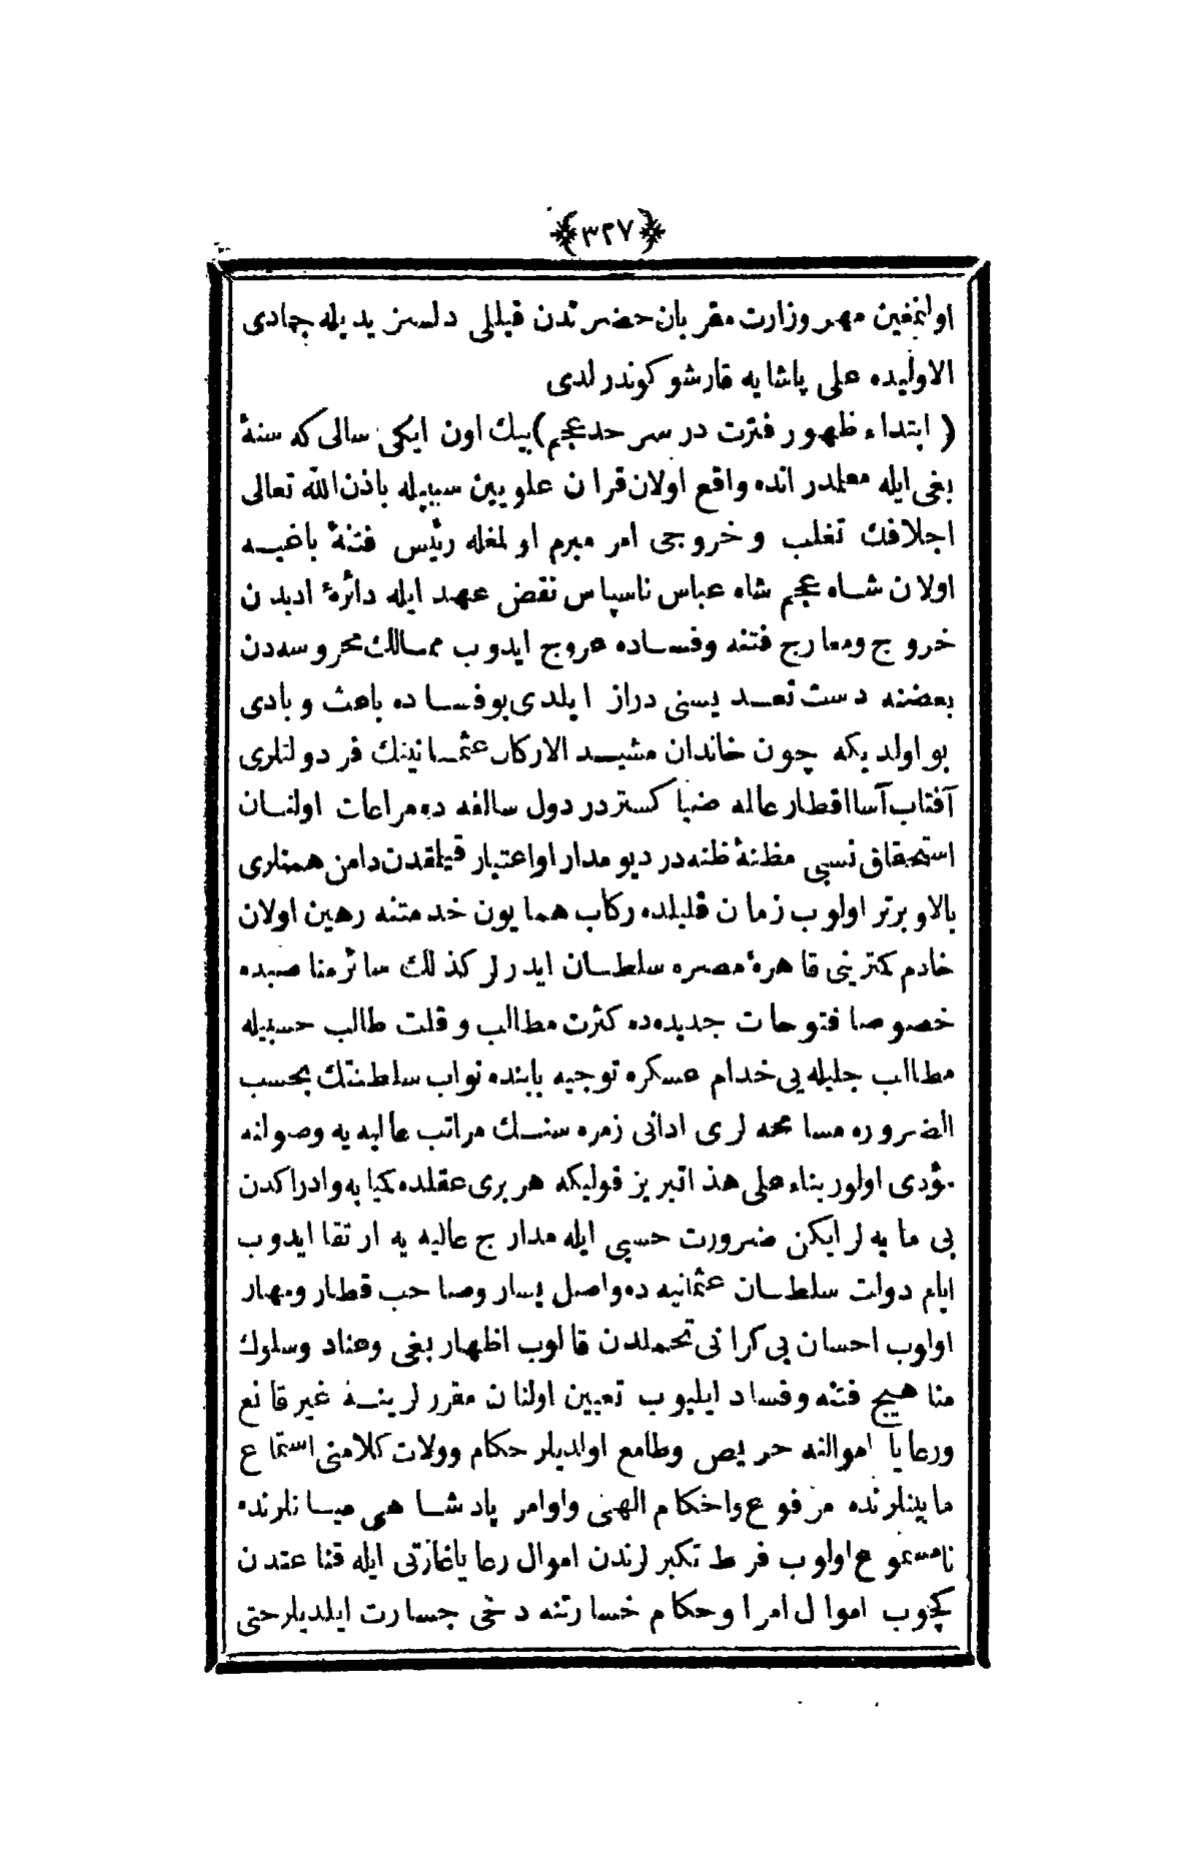 ﴿٣٢٧﴾
اولنمغين مهر وزارت مقربان حضرتدن قيللی دلسز يديله جمادی
الاوليده علی پاشايه قارشو كوندرلدی
( ابتداء ظهور فترت در سرحد عجم ) بيك اون ايكی سالی كه سنۀ
بغی ايله معلمدر انده واقع اولان قران علويين سببيله باذن الله تعالی
اجلافك تغلب و خروجی امر مبرم اولمغله رئيس فتنۀ باغيه
اولان شاه عجم شاه عباس ناسپاس نقض عهد ايله دائرۀ ادبدن
خروج ومعارج فتنه وفساده عروج ايدوب ممالك محروسه‌دن
بعضنه دست تعديسنی دراز ايلدی بو فساده باعث و بادی
بو اولديكه چون خاندان مشيد الاركان عثمانينك فر دولتلری
آفتاب آسا اقطار عالمه ضيا كستردر دول سالفه ده مراعات اولنان
استحقاق نسبی مظنۀ ظنه در ديو مدار اواعتبار قيلمقدن دامن همتلری
بالا و برتر اولوب زمان قليلده ركاب همايون خدمتنه رهين اولان
خادم كمترينی قاهرۀ مصره سلطان ايدرلر كذلك سائر مناصبده
خصوصا فتوحات جديده ده كثرت مطالب و قلت طالب حسبيله
مطالب جليله يی خدام عسكره توجيه بابنده نواب سلطنتك بحسب
الضروره مسامحه لری ادانی زمره سنك مراتب عاليه يه وصولنه
مؤدی اولور بناء علی هذا تبريز قوليكه هر بری عقلده كميابه وادراكدن
بی مايه لر ايكن ضرورت حسبی ايله مدارج عاليه يه ارتقا ايدوب
ايام دولت سلطان عثمانيه ده واصل يسار وصاحب قطار ومهار
اولوب احسان بی كرانی تحملدن قالوب اظهار بغی وعناد وسلوك
مناهيج فتنه وفساد ايليوب تعيين اولنان مقررلرينه غير قانع
ورعايا اموالنه حريص وطامع اولديلر حكام وولات كلامنی استماع
مابينلرنده مرفوع واحكام الهی واوامر پادشاهی ميانلرنده
نامسموع اولوب فرط تكبرلرندن اموال رعايا غارتی ايله قناعتدن
كچوب اموال امرا وحكام خسارتنه دخی جسارت ايلديلر حتی